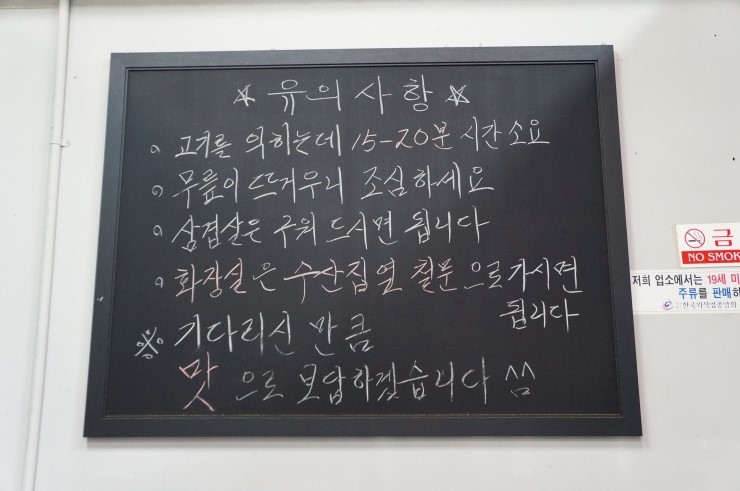 ☆ 유의사항 ☆
◦ 고기를 익히는데 15-20분 시간소요
◦ 무릎이 뜨거우니 조심하세요
◦ 삼겹살은 구워 드시면 됩니다
◦ 화장실은 수산집 옆 철문으로 가시면
됩니다
※ 기다리신 만큼
맛으로 보답하겠습니다 ^^
금
NO SMOK
저희 업소에서는 19세 미
주류를 판매하
한국외식업중앙회